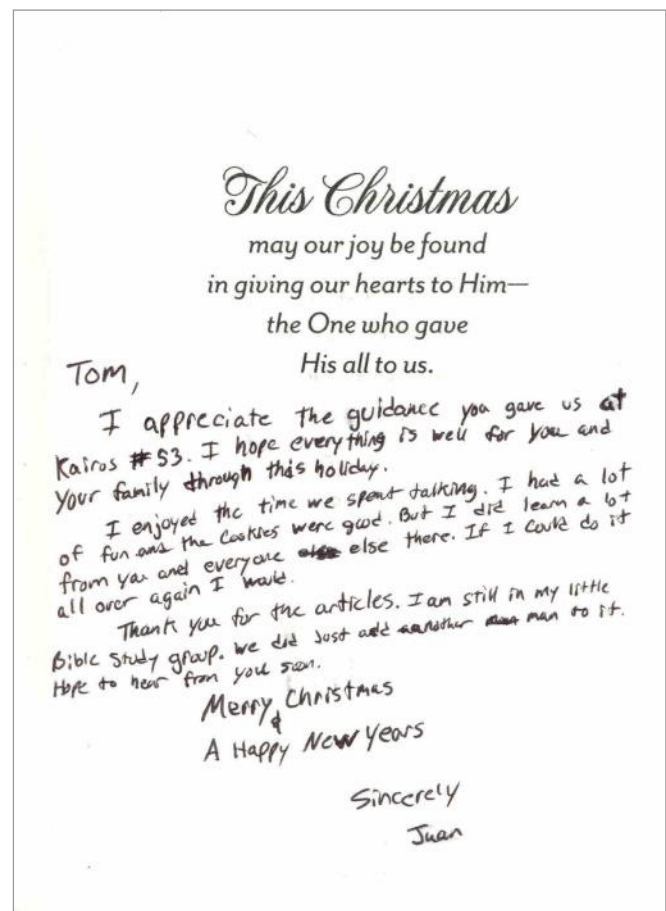 This Christmas
may our joy be found
in giving our hearts to Him—
the One who gave
His all to us.
Tom,
I appreciate the guidance you gave us at
Kairos #53. I hope everything is well for you and
your family through this holiday.
I enjoyed the time we spent talking. I had a lot
of fun and the cookies were good. But I did learn a lot
from you and everyone else there. If I could do it
all over again I would.
Thank you for the articles. I am still in my little
Bible study group. We did just add another man to it.
Hope to hear from you soon.
Merry Christmas
&
A Happy New Years
Sincerely
Juan